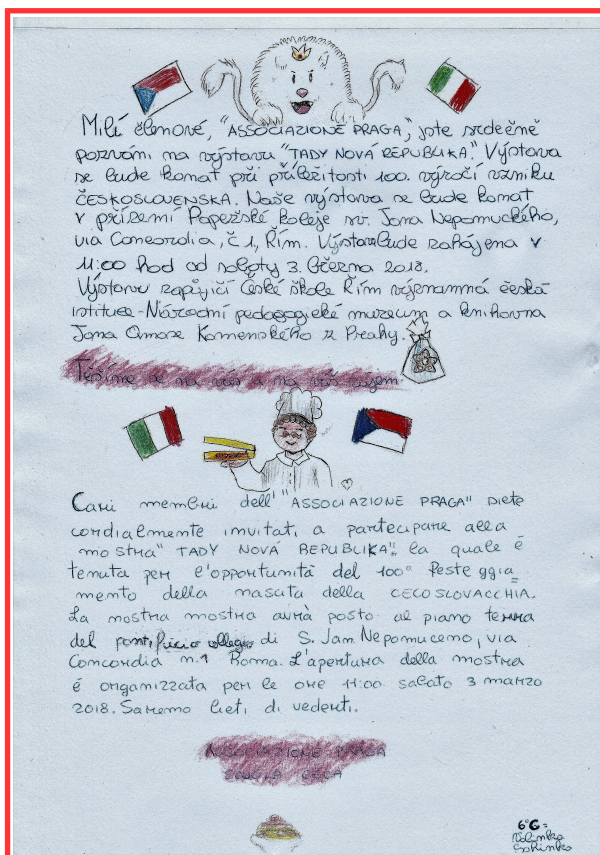 Milí členové, "ASSOCIAZIONE PRAGA", jste srdečně
pozváni na výstavu "TADY NOVÁ REPUBLIKA". Výstava
se bude konat při příležitosti 100. výročí vzniku
ČESKOSLOVENSKA. Naše výstava se bude konat
v přízemí Papežské koleje sv. Jana Nepomuckého,
via Concordia, č 1, Řím. Výstava bude zahájena v
11:00 hod od soboty 3. března 2018.
Výstavu zapůjčí České škole Řím významná česká
istituce - Národní pedagogické muzeum a knihovna
Jana Amose Komenského z Prahy.
Těšíme se na vás a na váš zájem.
Cari membri dell'"ASSOCIAZIONE PRAGA" siete
cordialmente invitati a partecipare alla
mostra "TADY NOVÁ REPUBLIKA", la quale é
tenuta per l'opportunità del 100° festeggia=
mento della nascita della CECOSLOVACCHIA.
La mostra mostra avrà posto al piano terra
del pontificio collegio di S. Jam Nepomuceno, via
Concordia n.1 Roma. L'apertura della mostra
é organizzata per le ore 11:00 sabato 3 marzo
2018. Saremo lieti di vederti.
ASSOCIAZIONE PRAGA
SCUOLA CECA
6°G=